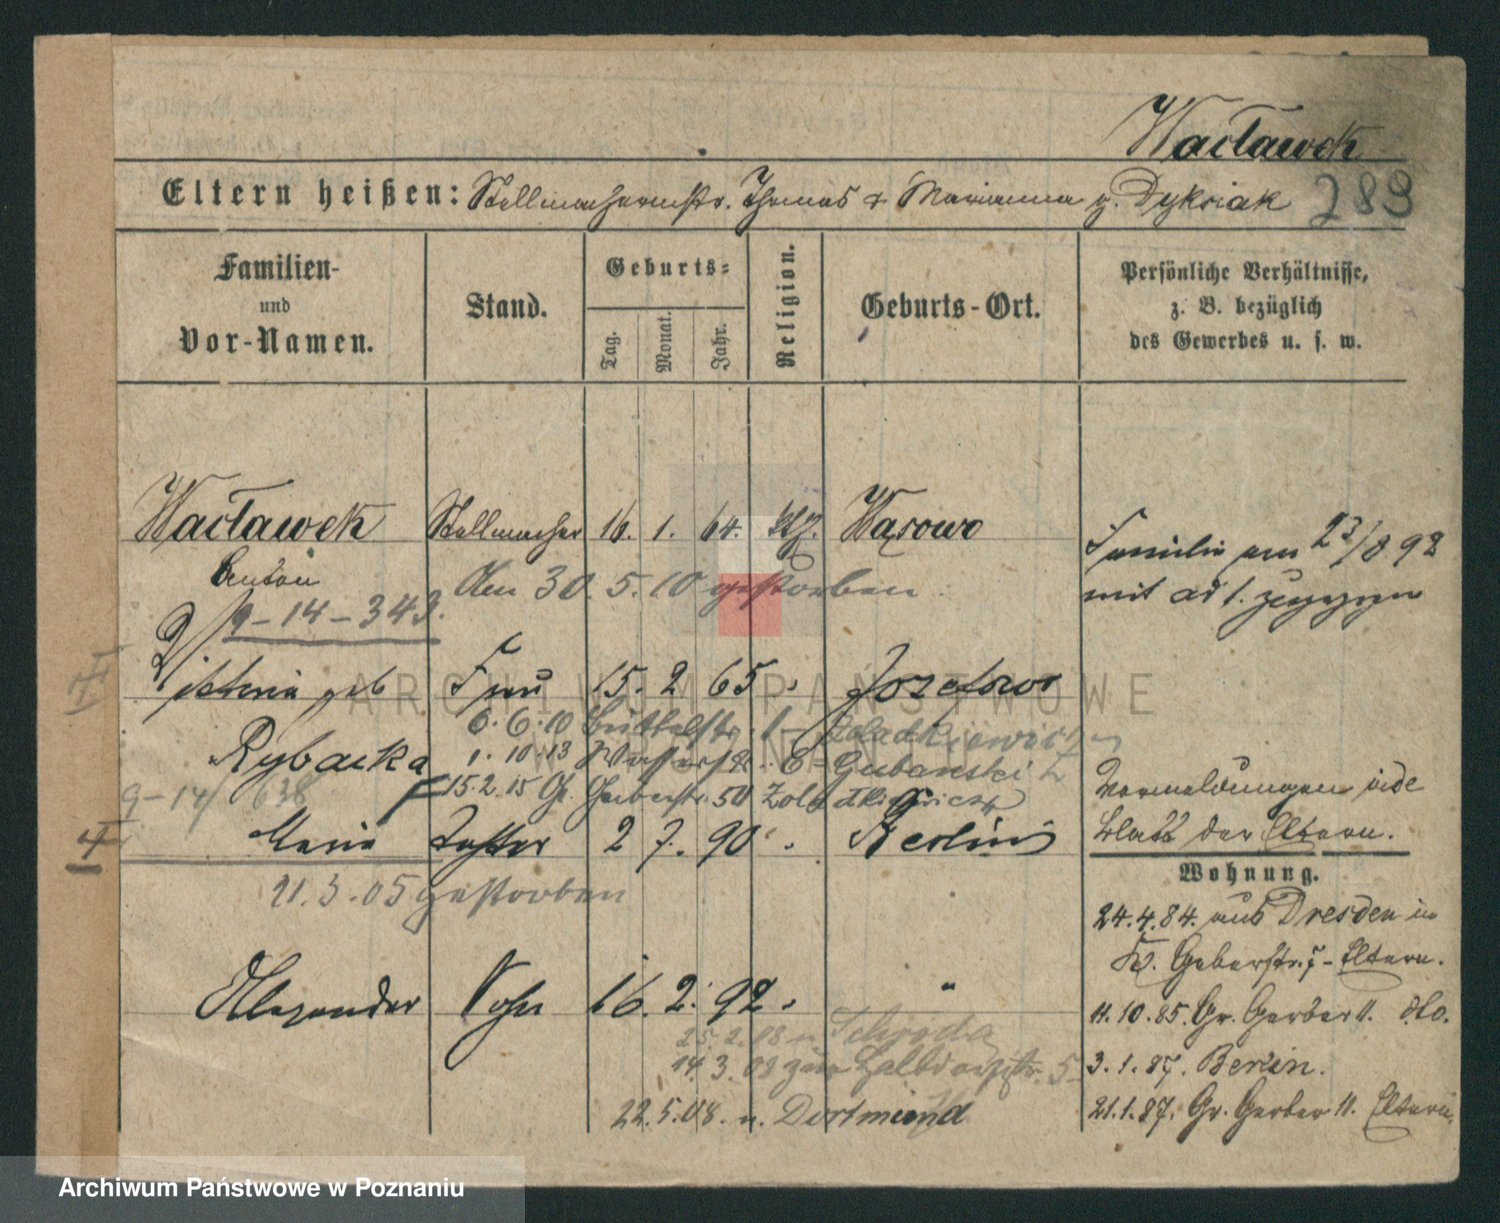 Wacławek
Eltern heißen: Stellmachermstr. Thomas & Marianna g. Dykciak 289
Familien-
und
Vor-Namen.
Stand.
Geburts-
Tag.
Monat.
Jahr.
Religion.
Geburts-Ort.
Persönliche Verhältnisse,
z. B. bezüglich
des Gewerbes u. s. w.
Wacławek Stellmacher 16. 1. 64. Wąsowo
Anton
den 30. 5. 10 gestorben
9-14-343.
Familie am 23/8 92
mit ad 1. zugezogen
geb Frau 15. 2 65. Jozefowo
Rybacka
6. 6. 10 Büttelstr.
1. 10 13 Wasserstr. Gubanski
15.2.15 Gr. Gerberstr. 50
9-14/638
Maria Tochter 2 7. 90. Berlin
21.3.05 gestorben
Alexander Sohn 16. 2. 92. "
25.2.08 n Schroda
14 3. 08 zur Halbdorfstr. 5
22.5.08. n. Dortmund
Vermeldungen siehe
Blatt der Eltern.
Wohnung.
24.4.84. aus Dresden in
Gerberstr. 7 - Eltern.
11.10.85. Gr. Gerber 11. dto.
3.1.87. Berlin.
21.1.87. Gr. Gerber 11. Eltern.
ARCHIWUM PAŃSTWOWE
W POZNANIU
Archiwum Państwowe w Poznaniu